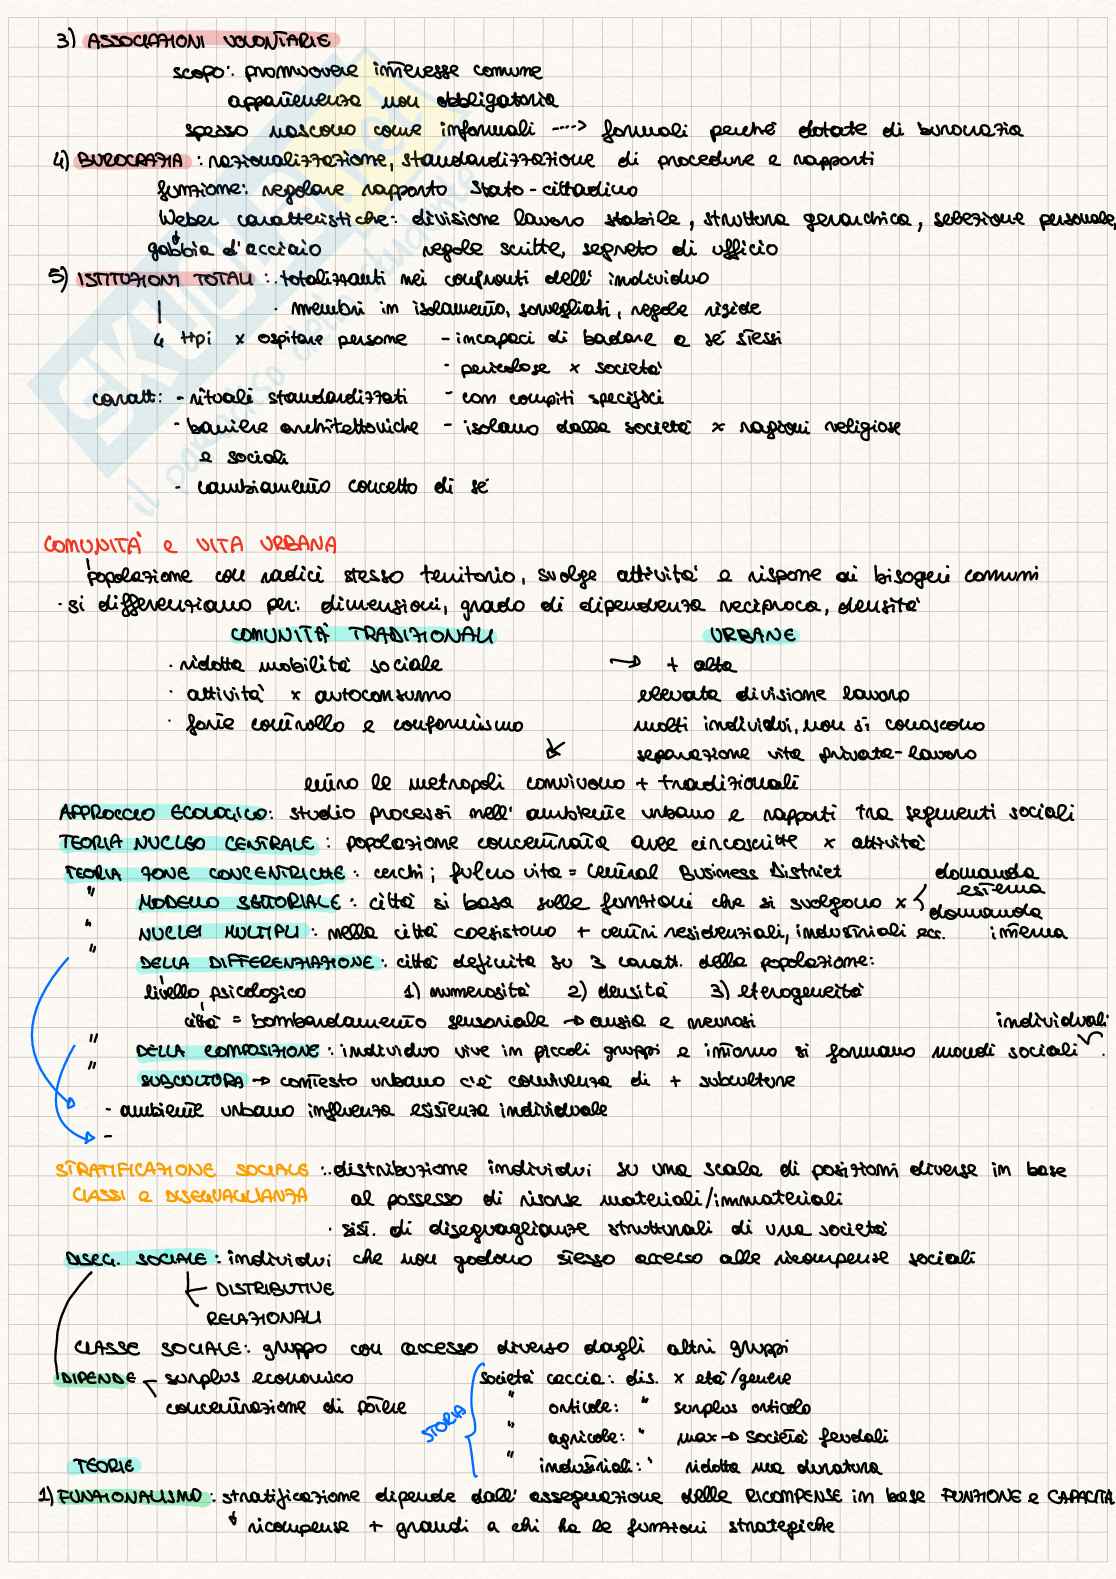 3) ASSOCIAZIONI VOLONTARIE
scopo: promuovere interesse comune
appartenenza non obbligatoria
spesso nascono come informali ----> formali perché dotate di burocrazia
4) BUROCRAZIA : razionalizzazione, standardizzazione di procedure e rapporti
funzione: regolare rapporto Stato-cittadino
Weber caratteristiche: divisione lavoro stabile, struttura gerarchica, selezione personale,
gabbia d'acciaio regole scritte, segreto di ufficio
5) ISTITUZIONI TOTALI : · totalizzanti nei confronti dell' individuo
· membri in isolamento, sorvegliati, regole rigide
4 tipi x ospitare persone - incapaci di badare a sé stessi
- pericolose x società
caratt: - rituali standardizzati - con compiti specifici
- barriere architettoniche - isolano dalla società x ragioni religiose
e sociali
- cambiamento concetto di sé
COMUNITÀ e VITA URBANA
popolazione con radici stesso territorio, svolge attività e rispone ai bisogni comuni
· si differenziano per: dimensioni, grado di dipendenza reciproca, densità
COMUNITÀ TRADIZIONALI URBANE
· ridotta mobilità sociale → + alta
· attività x autoconsumo elevata divisione lavoro
· forte controllo e conformismo molti individui, non si conoscono
separazione vita privata-lavoro
entro le metropoli convivono + tradizionali
APPROCCIO ECOLOGICO: studio processi nell' ambiente urbano e rapporti tra segmenti sociali
TEORIA NUCLEO CENTRALE : popolazione concentrata aree circoscritte x attività
TEORIA ZONE CONCENTRICHE : cerchi; fulcro vita = Central Business District domanda
esterna
" MODELLO SETTORIALE : città si basa sulle funzioni che si svolgono x
domanda
" NUCLEI MULTIPLI : nella città coesistono + centri residenziali, industriali ecc. interna
" DELLA DIFFERENZIAZIONE : città definita su 3 caratt. della popolazione:
livello psicologico 1) numerosità 2) densità 3) eterogeneità
città = bombardamento sensoriale → ansia e nevrosi individuali
" DELLA COMPOSIZIONE : individuo vive in piccoli gruppi e intorno si formano mondi sociali .
" SUBCULTURA → contesto urbano c'è convivenza di + subculture
- ambiente urbano influenza esistenza individuale
-
STRATIFICAZIONE SOCIALE : · distribuzione individui su una scala di posizioni diverse in base
CLASSI e DISEGUAGLIANZA al possesso di risorse materiali/immateriali
· sist. di diseguaglianze strutturali di una società
DISEG. SOCIALE : individui che non godono stesso accesso alle ricompense sociali
DISTRIBUTIVE
RELAZIONALI
CLASSE SOCIALE: gruppo con accesso diverso dagli altri gruppi
DIPENDE surplus economico società caccia: dis. x età/genere
concentrazione di potere " orticole: " surplus orticolo
STORIA
" agricole: " max → società feudali
TEORIE " industriali: " ridotta ma duratura
1) FUNZIONALISMO : stratificazione dipende dall' assegnazione delle RICOMPENSE in base FUNZIONE e CAPACITÀ
ricompense + grandi a chi ha le funzioni strategiche